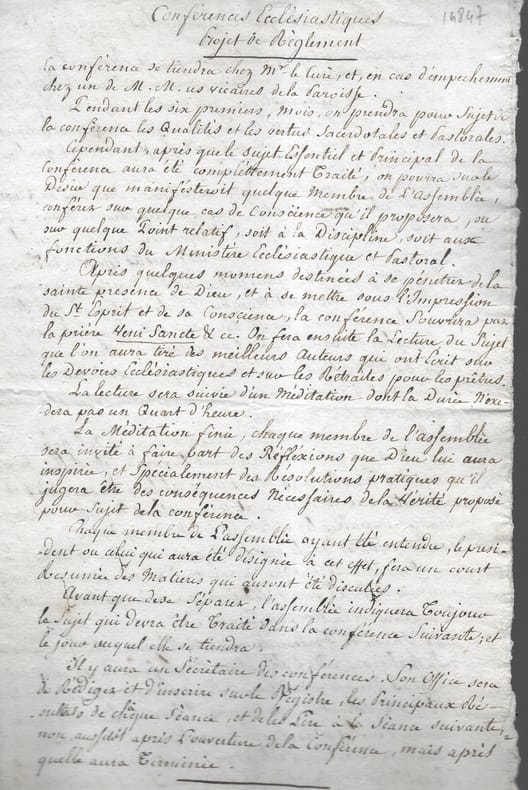 Conférences Ecclésiastiques
14847
Projet de Règlement
La conférence se tiendra chez Mr. le Curé, et, en cas d'empechement
chez un de M. M. les vicaires de la Paroisse.
Pendant les six premiers, mois, on prendra pour Sujet de
la conférence les Qualités et les vertus Sacerdotales et Pastorales.
Cependant, après que le sujet Essentiel et Principal de la
Conférence aura été complettement Traité, on pourra sur le
Désir que manifésteroit quelque Membre de l'Assemblée,
conférer sur quelque cas de Conscience qu'il proposera, ou
sur quelque Point relatif, soit à la Discipline, soit aux
fonctions du Ministère Ecclésiastique et Pastoral.
Après quelques momens destinées à se pénétrer de la
sainte presence de Dieu, et à se mettre sous l'Impression
du St. Esprit et de sa Conscience, la conférence S'ouvrira par
la prière Veni Sancte & c. On fera ensuite la Lecture du Sujet
que l'on aura tiré des meilleurs Auteurs qui ont Ecrit sur
les Devoirs Ecclésiastiques et sur les Rétraites pour les prêtres.
La lecture sera suivie d'un Méditation dont la Durée N'exe-
dera pas un Quart d'heure.
La Méditation finie, chaque membre de l'assemblée
sera invité à faire part des Réfléxions que Dieu lui aura
inspirée, et Spécialement des Résolutions pratiques qu'il
jugera être des conséquences Nécessaires de la Vérité proposé
pour Sujet de la conférence.
Chaque membre de l'assemblée ayant été entendu, le presi-
dent ou celui qui aura été désignée à cet effet, fera un court
Resumée des Matieres qui auront été discutées.
Avant que de se Séparer, l'assemblée indiquera Toujours
le Sujet qui devra être Traité dans la conférence Suivante, et
le jour auquel elle se tiendra.
Il y aura un Sécrétaire des conférences. Son Office sera
de Rédiger et d'inscrire sur le Régistre, les Principaux Ré-
sultats de chaque Séance, et de les Lire à la Séance suivante,
non aussitôt après l'ouverture de la Conférence, mais après
quelle aura Terminée.